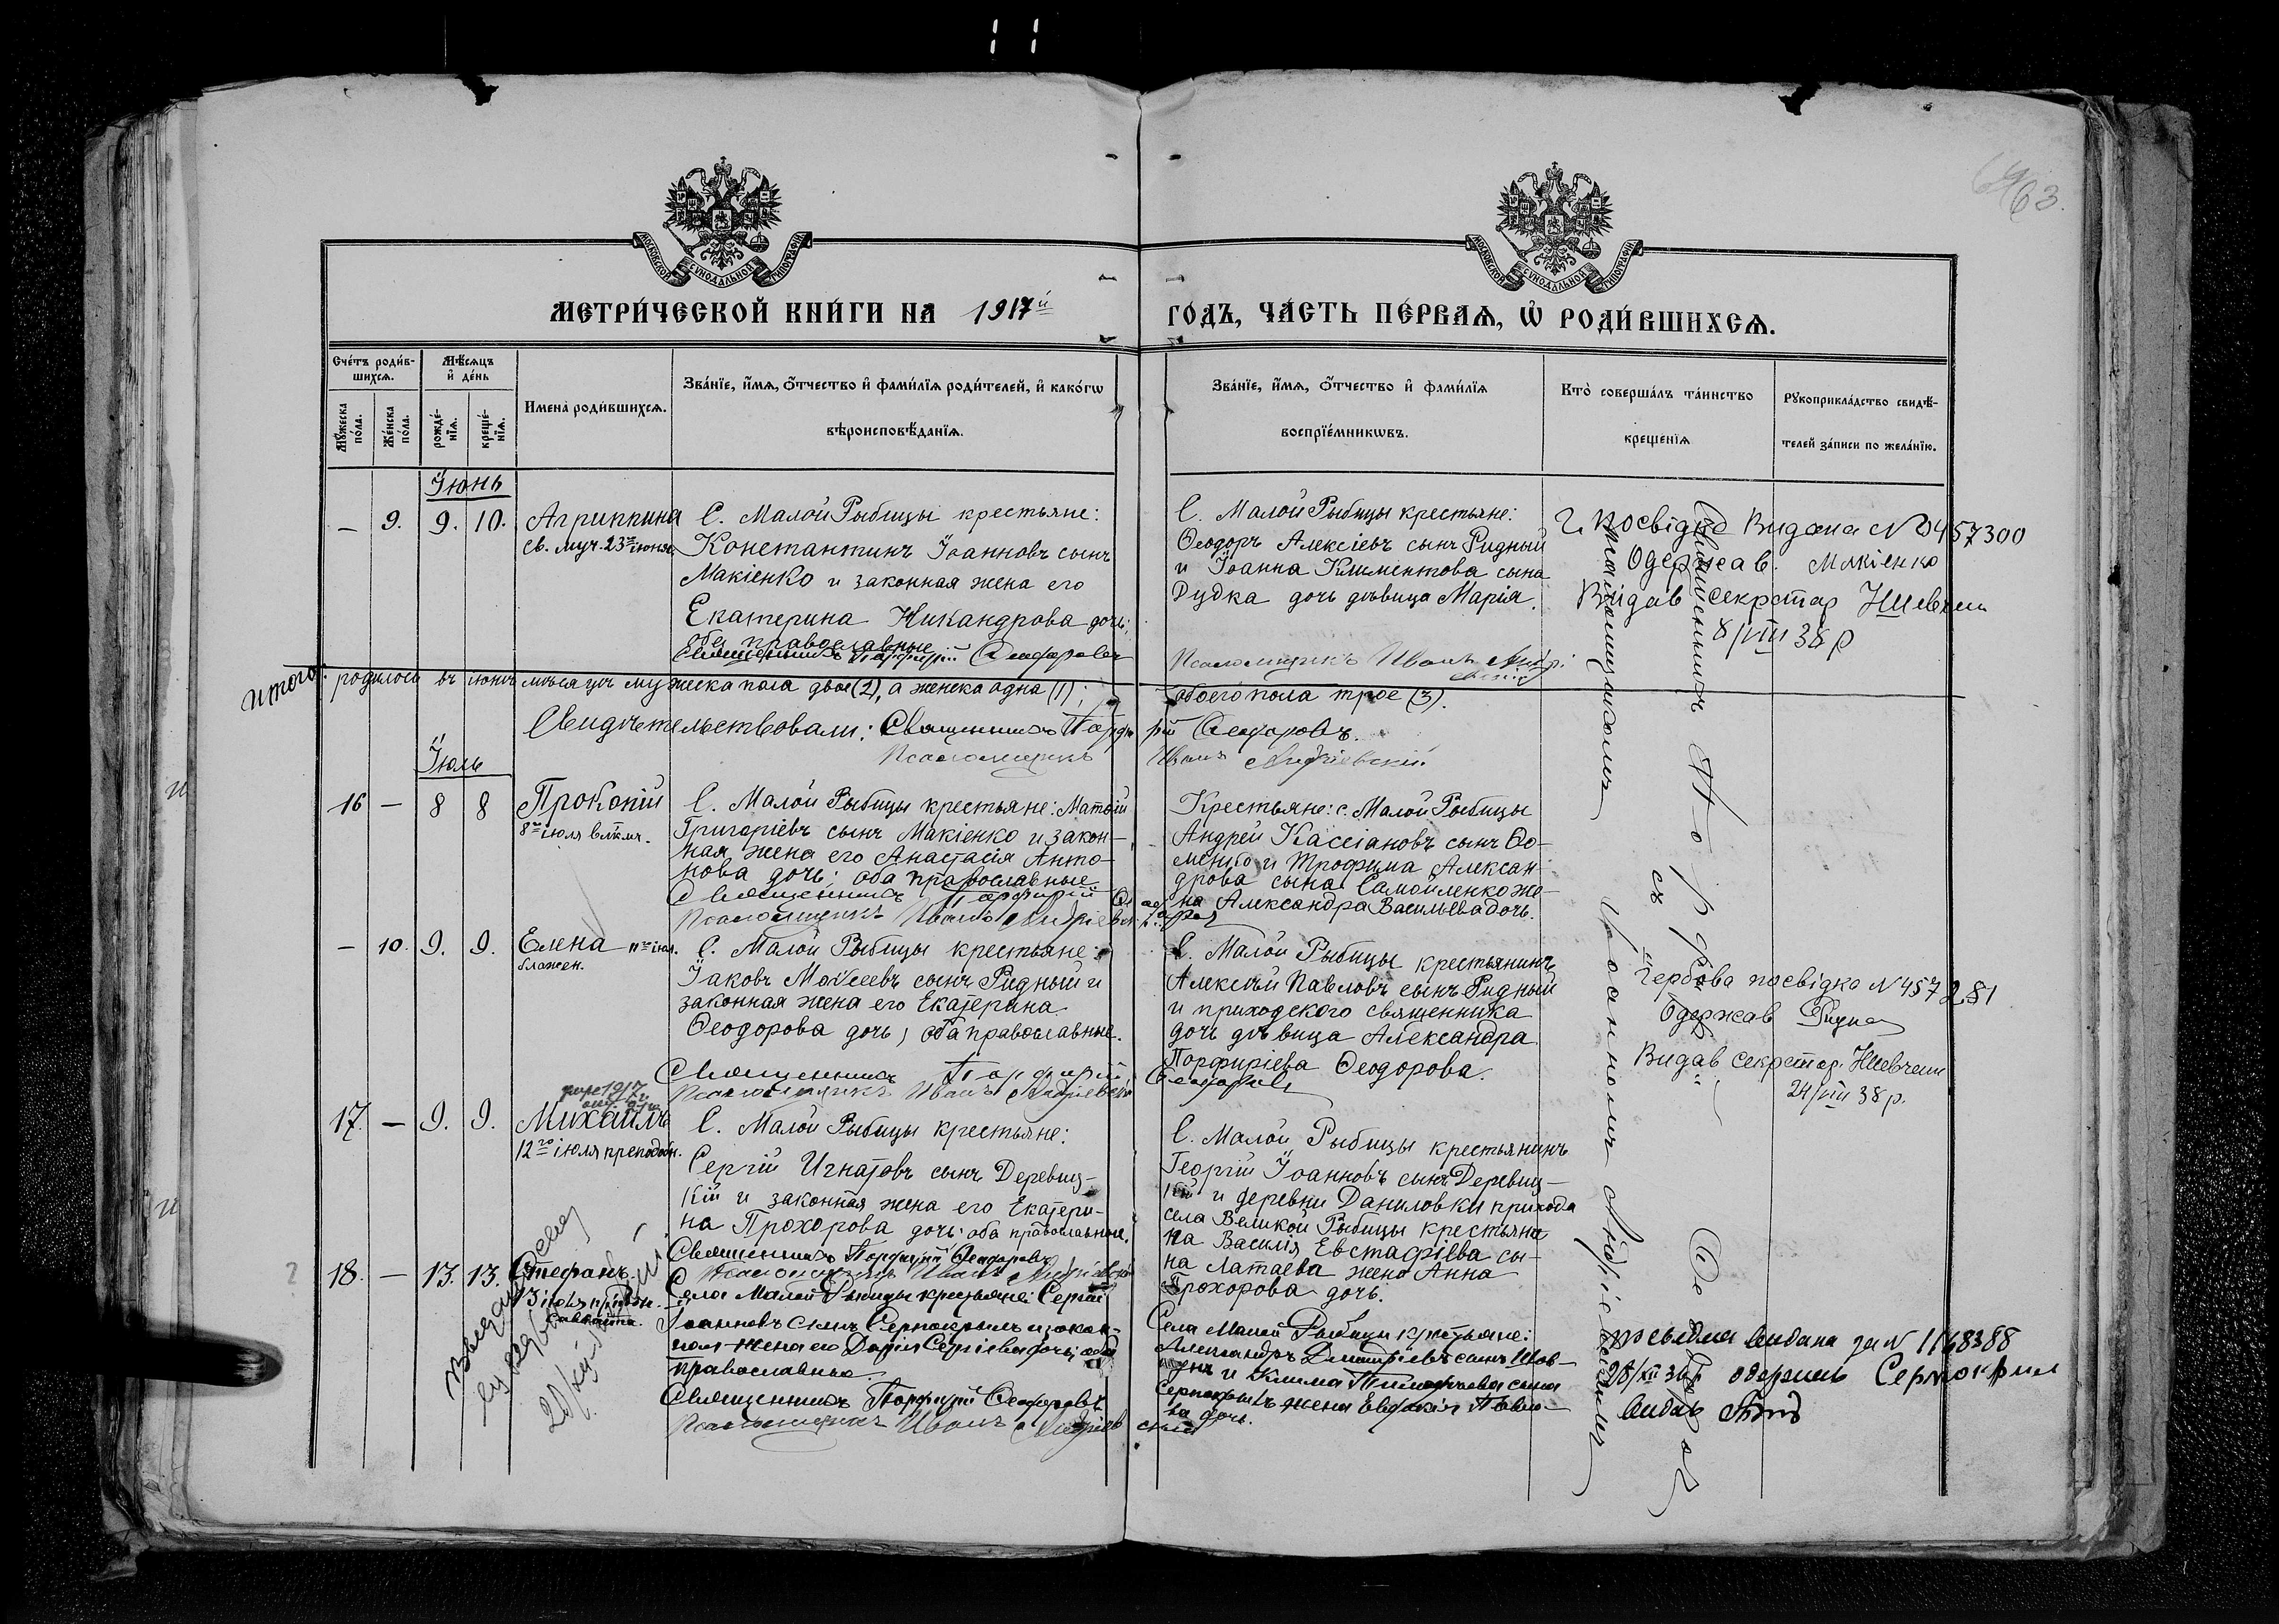 63.
МОСКОВСКОЙ СУНОДАЛЬНОЙ ТИПОГРАФІИ
МОСКОВСКОЙ СУНОДАЛЬНОЙ ТИПОГРАФІИ
МЕТРИ́ЧЕСКОЙ КНИ́ГИ НА 1917й
ГОДЪ, ЧА́СТЬ ПЕ́РВАѦ, Ѡ҆ РОДИ́ВШИХСѦ.
Сче́тъ роди́в-
шихсѧ.
Мѣ́сѧцъ
и҆ де́нь
Мꙋ́жеска
по́ла.
Же́нска
по́ла.
рожде́-
нїѧ.
креще́-
нїѧ.
Имена̀ роди́вшихсѧ.
Зва́нїе, и҆́мѧ, ѻ҆́тчество и҆ фами́лїѧ роди́телей, и҆ како́гѡ
вѣроисповѣ́данїѧ.
Зва́нїе, и҆́мѧ, ѻ҆́тчество и҆ фами́лїѧ
воспрїе́мникѡвъ.
Кто̀ соверша́лъ та́инство
креще́нїѧ
Рꙋкоприкла́дство свидѣ́-
телей за́писи по жела́нїю.
Іюнь
— 9. 9. 10.
Агриппина
св. муч. 23го іюня.
С. Малой Рыбицы крестьяне:
Константинъ Іоанновъ сынъ
Макіенко и законная жена его
Екатерина Никандрова дочь;
оба православные
Священникъ Порфирій Ѳеодоровъ
С. Малой Рыбицы крестьяне:
Ѳеодоръ Алексіевъ сынъ Ридный
и Іоанна Климентова сына
Рудка дочь дѣвица Марія.
Псаломщикъ Иванъ Андрі
евскій
Г. посвідка Видана № 0457300
Одержав. Макіенко
Видав секретар НШевчен
8/VIII 38 р
Итого: родилось въ іюнѣ мѣсяцѣ мужеска пола двое (2), а женска одна (1);
обоего пола трое (3).
Свидѣтельствовали: Священникъ Порфи
рій Ѳеодоровъ.
Псаломщикъ
Иванъ Андріевскій
Іюль
16 — 8 8
Прокопій
8го іюля влкмч.
С. Малой Рыбицы крестьяне: Матѳій
Григоріевъ сынъ Макіенко и закон-
ная жена его Анастасія Анто-
нова дочь; оба православные
Священникъ Порфирій Ѳеодоровъ
Псаломщикъ Иванъ Андріевскій
Крестьяне: с. Малой Рыбицы
Андрей Кассіановъ сынъ Ѳо-
менко и Трофима Алексан-
дрова сына Самойленко же-
на Александра Васильева дочь.
— 10. 9. 9.
Елена 11го іюл.
блажен.
С. Малой Рыбицы крестьяне:
Іаковъ Моѵсеевъ сынъ Ридный и
законная жена его Екатерина
Ѳеодорова дочь; оба православные.
Священникъ Порфирій
Ѳеодоровъ
Псаломщикъ Иванъ Андріевскій
С. Малой Рыбицы крестьянинъ
Алексѣй Павловъ сынъ Ридный
и приходского священника
дочь дѣвица Александра
Порфиріева Ѳеодорова.
Гербова посвідка №457281
Одержав Ридна
Видав секретар НШевчен
24/VIII 38 р.
17. — 9. 9.
Михаилъ
12го іюля преподобн.
С. Малой Рыбицы крестьяне:
Сергій Игнатовъ сынъ Деревиц-
кій и законная жена его Екатери-
на Прохорова дочь; оба православные.
Священникъ Порфирій Ѳеодоровъ
Псаломщикъ Иванъ Андріевскій
С. Малой Рыбицы крестьянинъ
Георгій Іоанновъ сынъ Деревиц-
кій и деревни Даниловки прихода
села Великой Рыбицы крестьяни-
на Василія Евстафіева сы-
на Латаева жена Анна
Прохорова дочь.
? 18. — 13. 13.
Стефанъ
13 іюля преподобн.
Савваита.
Села Малой Рыбицы крестьяне: Сергій
Іоанновъ сынъ Сермокрылъ и закон-
ная жена его Дарія Сергіева дочь; оба
православные.
Священникъ Порфирій Ѳеодоровъ
Псаломщикъ Иванъ Андріев
скій
Села Малой Рыбицы крестьяне:
Александръ Димитріевъ сынъ
и Клима Тимофеева сына
жена Евдокія Павло-
ва дочь.
видана за № 1168388
28/XII 36 р одержав Сермокрил
Видав
Священникъ Порфирій Ѳеодоровъ
съ псаломщикомъ Іоанномъ Андріевскимъ